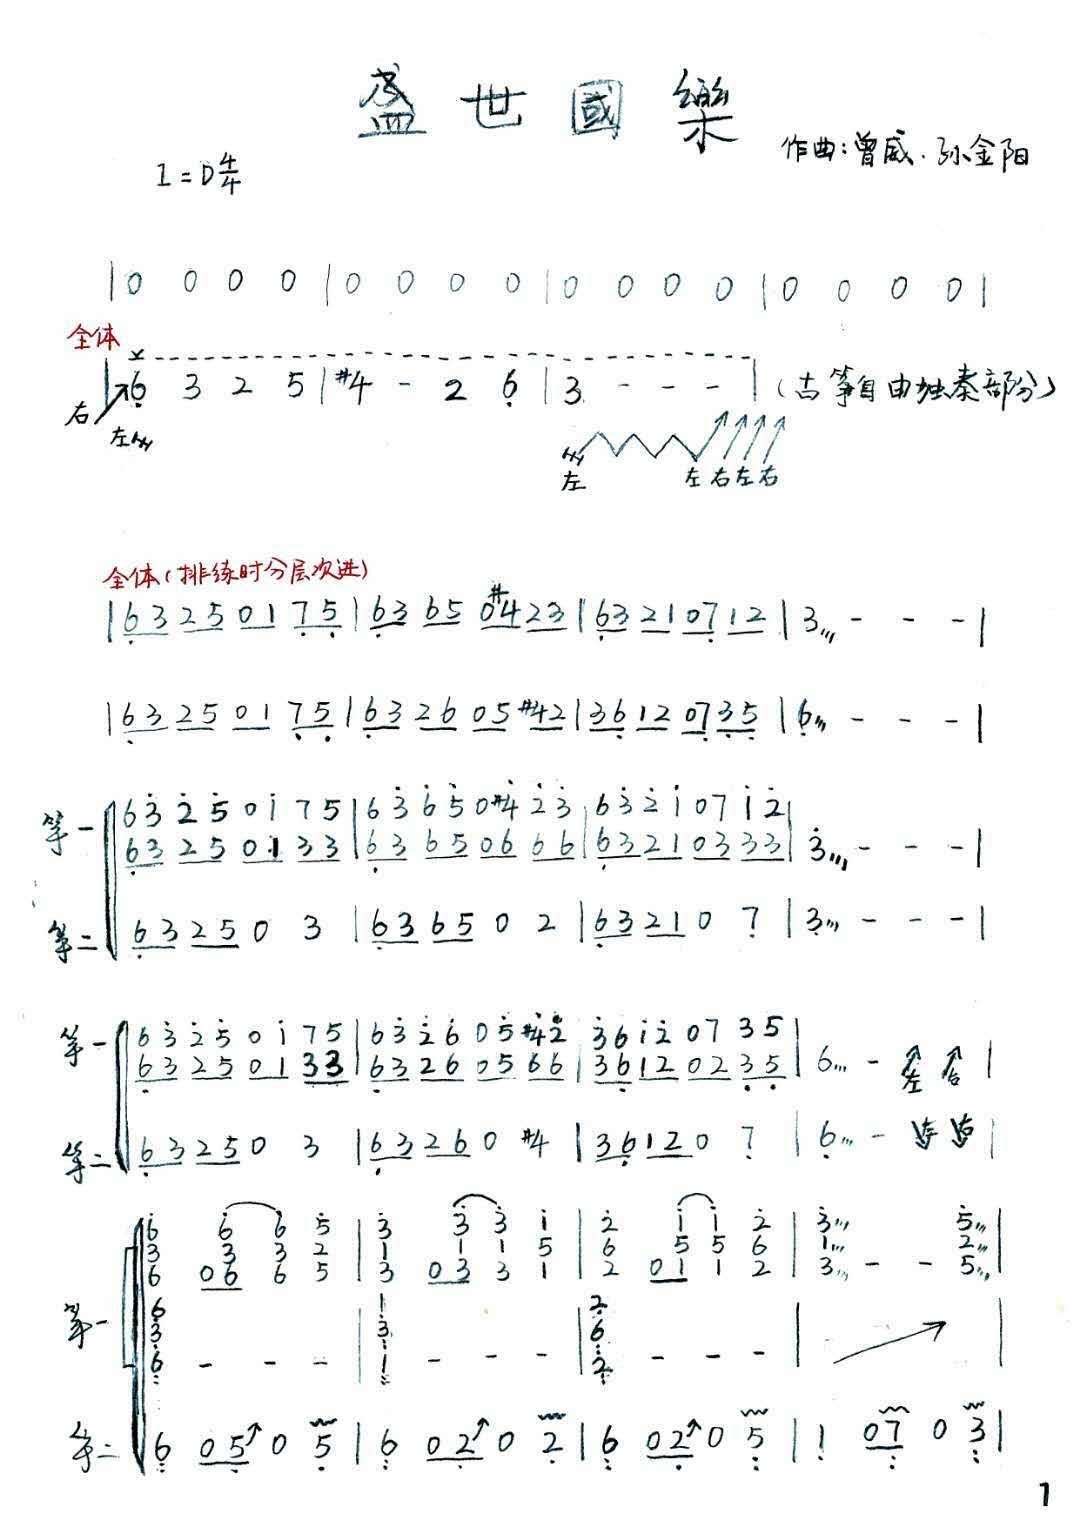 盛世國樂
作曲:曾威.孙金阳
1=D 4/4
|0 0 0 0|0 0 0 0|0 0 0 0|0 0 0 0|
全体
|6 3 2 5|#4 - 2 6|3 - - -|(古筝自由独奏部分)
右
左
左 左右左右
全体(排练时分层次进)
|63 25 01 75|63 65 0#4 23|63 21 07 12|3 - - -|
|63 25 01 75|63 26 05 #42|36 12 07 35|6 - - -|
筝一
63 25 01 75|63 65 0#4 23|63 21 07 12|
63 25 01 33|63 65 06 66|63 21 03 33|3 - - -|
筝二
63 25 0 3|63 65 0 2|63 21 0 7|3 - - -|
筝一
63 25 01 75|63 26 05 #42|36 12 07 35|
63 25 01 33|63 26 05 66|36 12 02 35|6 - 左 右|
筝二
63 25 0 3|63 26 0 #4|36 12 0 7|6 -|
筝一
6 6 6 5|3 3 3 1|2 1 1 2|3 5|
3 3 3 2|1 1 1 5|6 5 5 6|1 2|
6 06 6 5|3 03 3 1|2 01 1 2|3 - - 5|
6|1|2|
3|3|6|
6 - - -|1 - - -|2 - - -|
筝二
6 05 0 5|6 02 0 2|6 02 0 5|1 07 0 3|
1